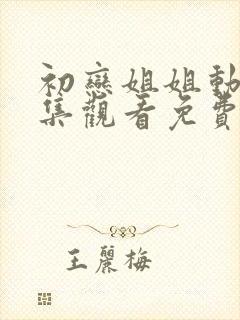 初戀姐姐動
集觀看免費
王麗梅